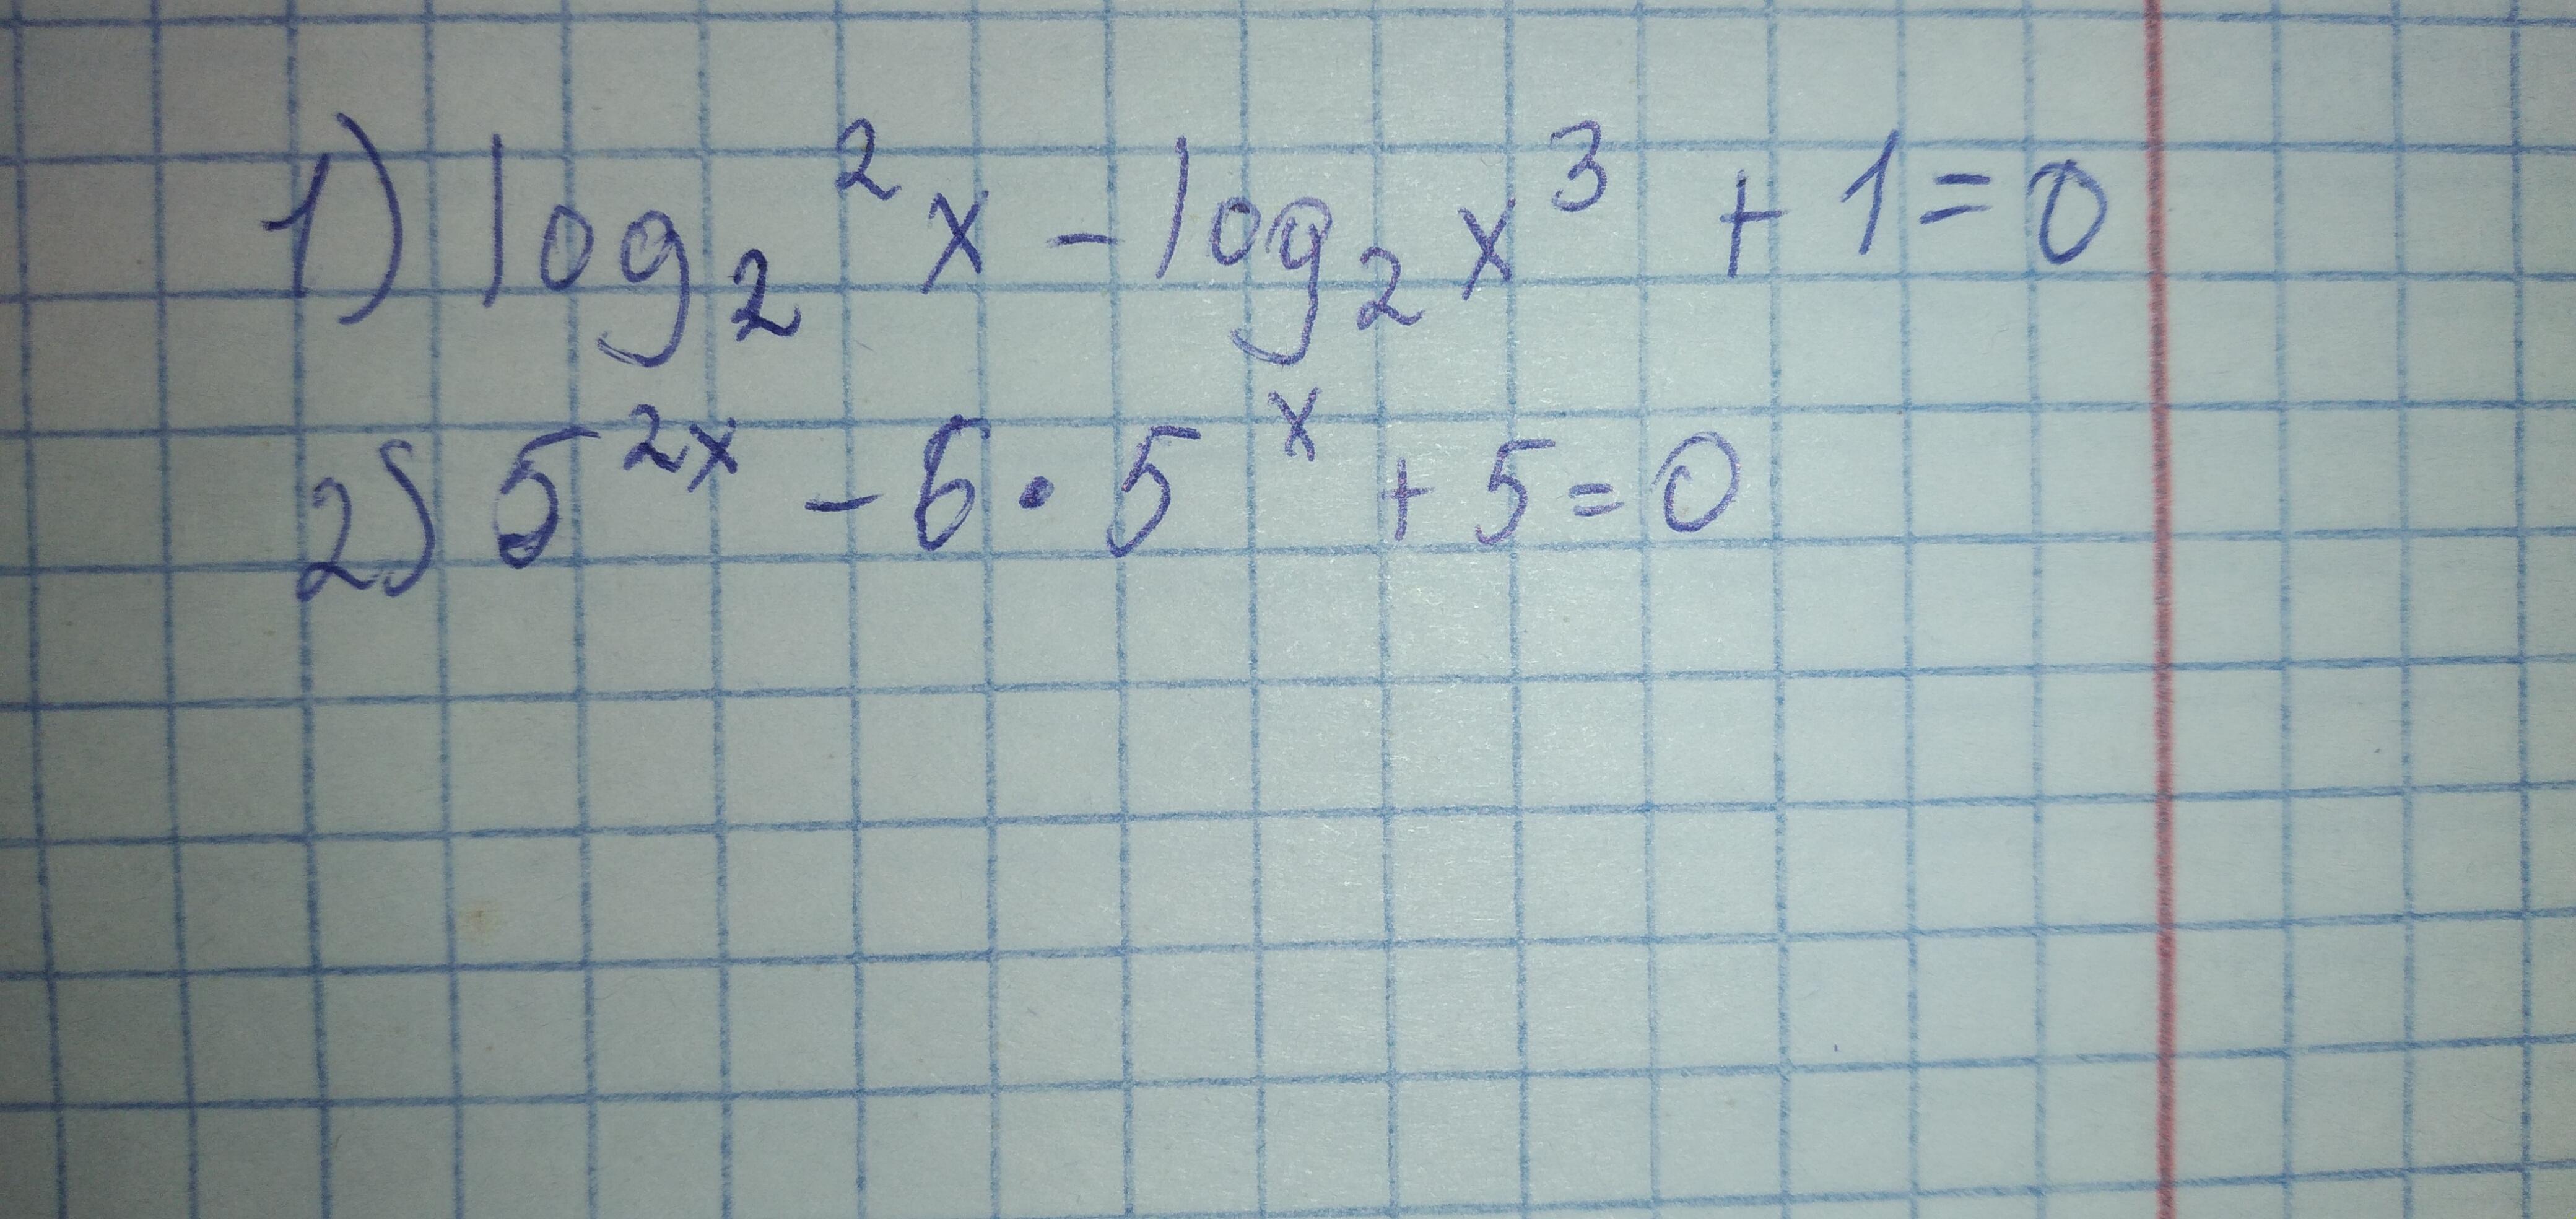 1) log₂² x - log₂ x³ + 1 = 0
2) 5²ˣ - 6 · 5ˣ + 5 = 0